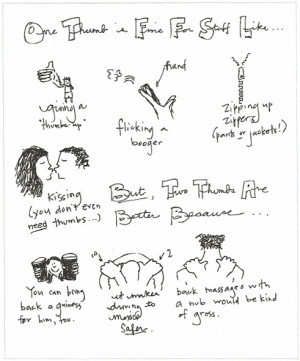 One Thumb is Fine For Stuff Like...
hand
giving a
"thumbs up"
flicking a
booger
zipping up
zippers
(pants or jackets!)
Kissing
(you don't even
need thumbs...)
But, Two Thumbs Are
Better Because ...
10
2
You can bring
back a guiness
for him, too.
it makes
driving to
Mexico
Safer.
back massages with
a nub would be kind
of gross.